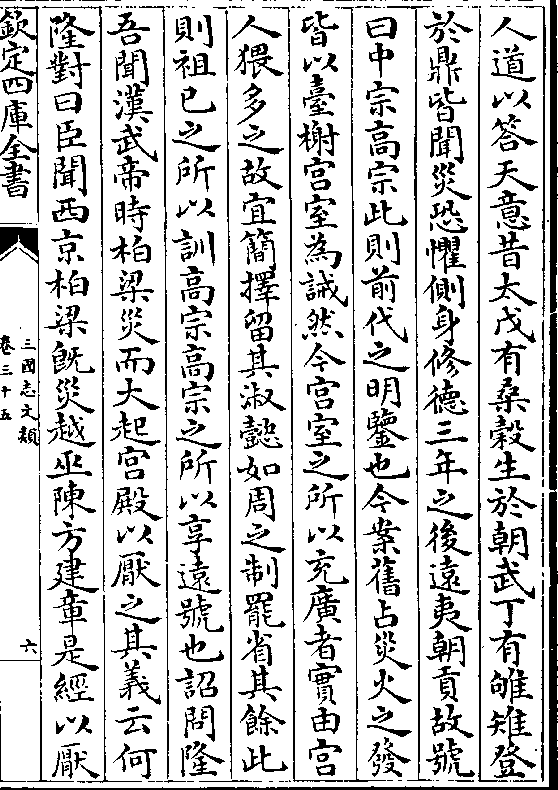 人道以答天意昔太戊有桑穀生於朝武丁有雊雉登
於鼎皆聞災恐懼側身修德三年之後遠夷朝貢故號
曰中宗高宗此則前代之明鑒也今案舊占災火之發
皆以臺榭宫室為誡然今宫室之所以充廣者實由宫
人猥多之故宜簡擇留其淑懿如周之制罷省其餘此
則祖已之所以訓高宗高宗之所以享遠號也詔問隆
吾聞漢武帝時柏梁災而大起宫殿以厭之其義云何
隆對曰臣聞西京柏梁既災越巫陳方建章是經以厭
欽定四庫全書
三國志文類
卷三十五
六